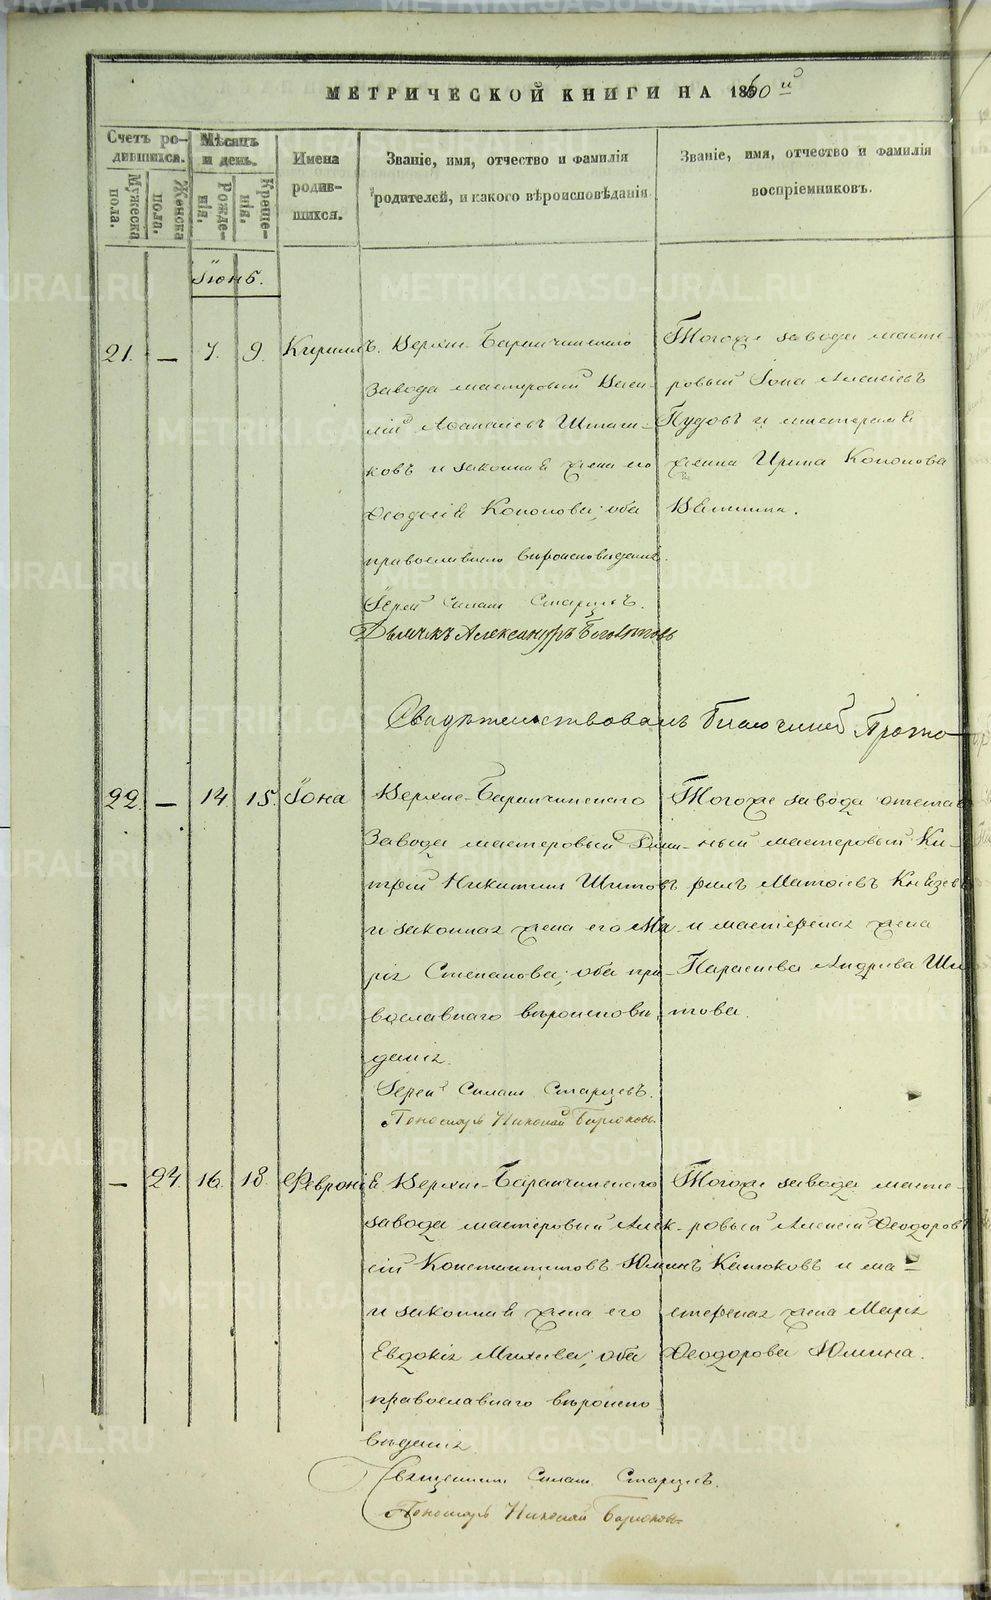 МЕТРИЧЕСКОЙ КНИГИ НА 1860й
Счетъ родившихся.
Мужеска пола.
Женска пола.
Мѣсяцъ и день.
Рожденія.
Крещенія.
Имена родившихся.
Званіе, имя, отчество и фамилія
родителей, и какого вѣроисповѣданія.
Званіе, имя, отчество и фамилія
воспріемниковъ.
Іюнь.
21. — 7. 9. Кириллъ.
Верхне-Баранчинскаго
завода мастеровый Васи-
лій Аѳанасіевъ
ковъ и законная жена его
Ѳеодосія Кононова; оба
православнаго вѣроисповѣданія.
Іерей Силавъ Старцевъ.
Дьячекъ Александръ
Тогоже завода масте-
ровый Іона Алексіевъ
Пудовъ и мастерская
жена Ирина Кононова
Свидѣтельствовалъ Благочинный Прото-
22. — 14 15. Іона
Верхне-Баранчинскаго
завода мастеровый Дими-
трій Никитинъ Шитовъ
и законная жена его Ма-
рія Степанова; оба пра-
вославнаго вѣроисповѣ-
данія.
Іерей Силавъ Старцевъ.
Пономарь Николай Бирюковъ
Тогоже завода отстав-
ный мастеровый Ки-
рилъ Матѳіевъ Князевъ
и мастерская жена
Параскева Андреева Ши-
това.
— 24. 16. 18. Февронія.
Верхне-Баранчинскаго
завода мастеровый Алек-
сій Константиновъ Юминъ
и законная жена его
Евдокія Михеева; оба
православнаго вѣроиспо
вѣданія.
Священникъ Силавъ Старцевъ.
Пономарь Николай Бирюковъ
Тогоже завода масте-
ровый Алексій Ѳеодоровъ
Катюковъ и ма-
стерская жена Марія
Ѳеодорова Юмина.
METRIKI.GASO-URAL.RU